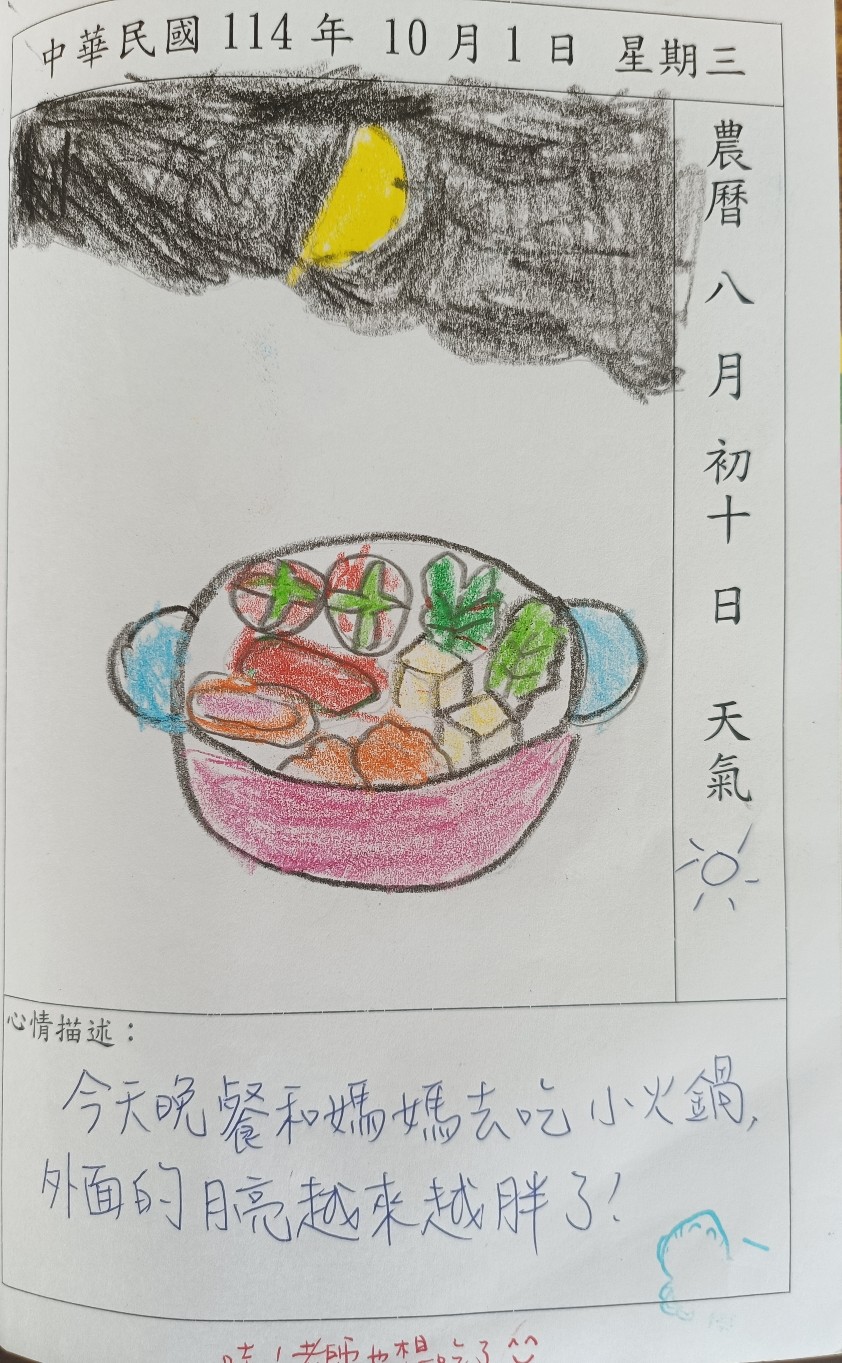 中華民國 114 年 10 月 1 日 星期三
農曆 八 月 初十 日 天氣
心情描述：
今天晚餐和媽媽去吃小火鍋,
外面的月亮越來越胖了!
哇!老師也想吃了